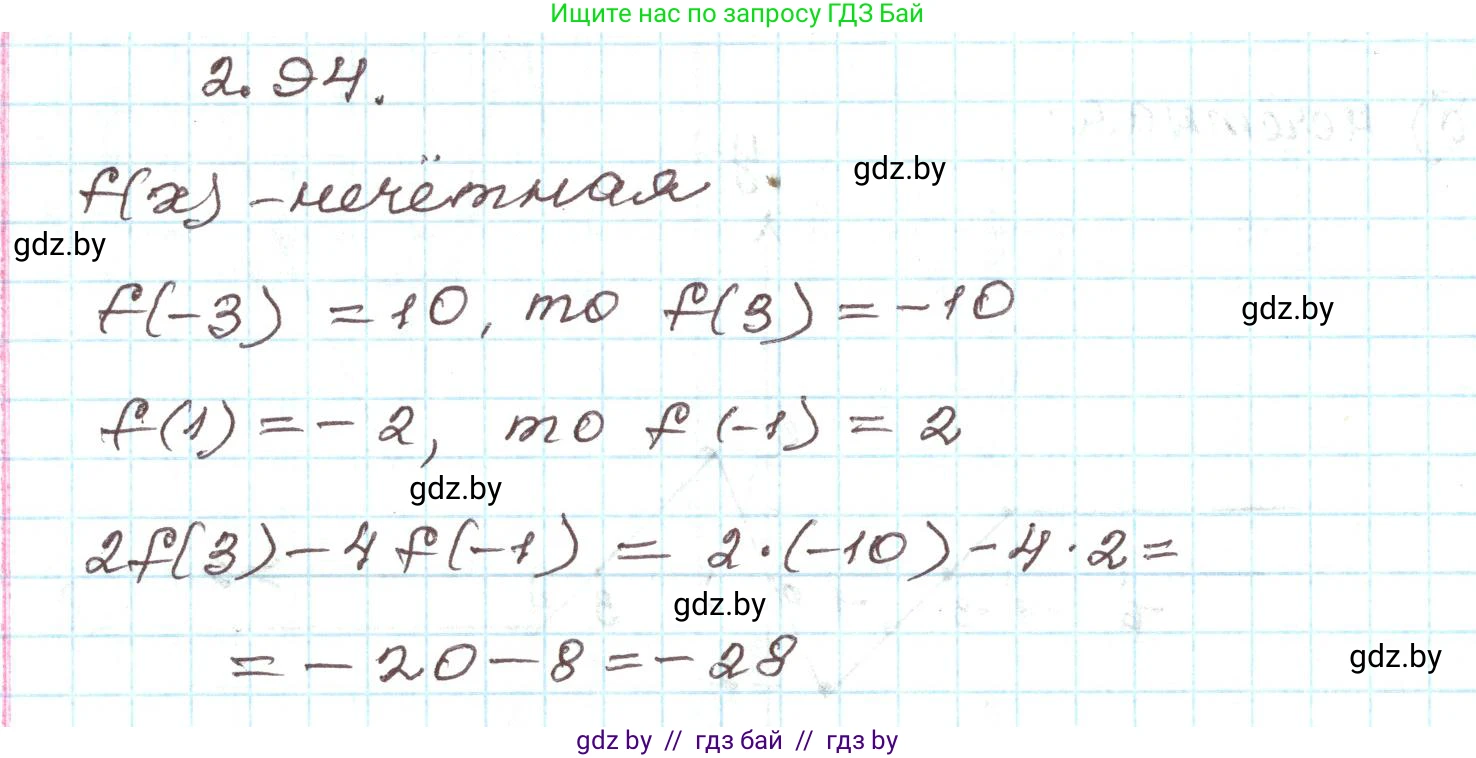 Ищите нас по запросу ГДЗ Бай
2.94.
f(x) - нечётная
gdz.by
gdz.by
f(-3) = 10, то f(3) = -10
gdz.by
f(1) = -2, то f(-1) = 2
gdz.by
2f(3) - 4f(-1) = 2·(-10) - 4·2 =
gdz.by
= -20 - 8 = -28
gdz.by
gdz by // гдз бай // гдз by